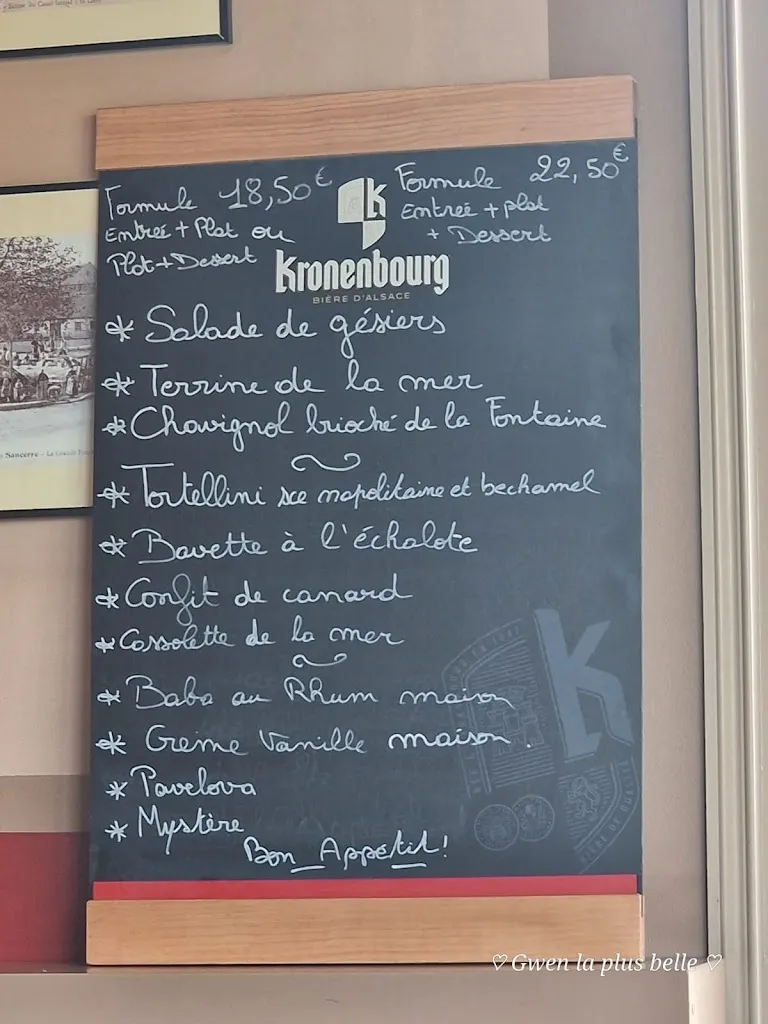 Formule 18,50€
Entrée + Plat ou
Plat + Dessert
Formule 22,50€
Entrée + plat
+ Dessert
K
Kronenbourg
BIÈRE D'ALSACE
* Salade de gésiers
* Terrine de la mer
* Chavignol brioché de la Fontaine
* Tortellini sce napolitaine et bechamel
* Bavette à l'échalote
* Confit de canard
* Cassolette de la mer
* Baba au Rhum maison
* Crème Vanille maison.
* Pavelova
* Mystère
Bon Appétit!
K
Sancerre
♡ Gwen la plus belle ♡